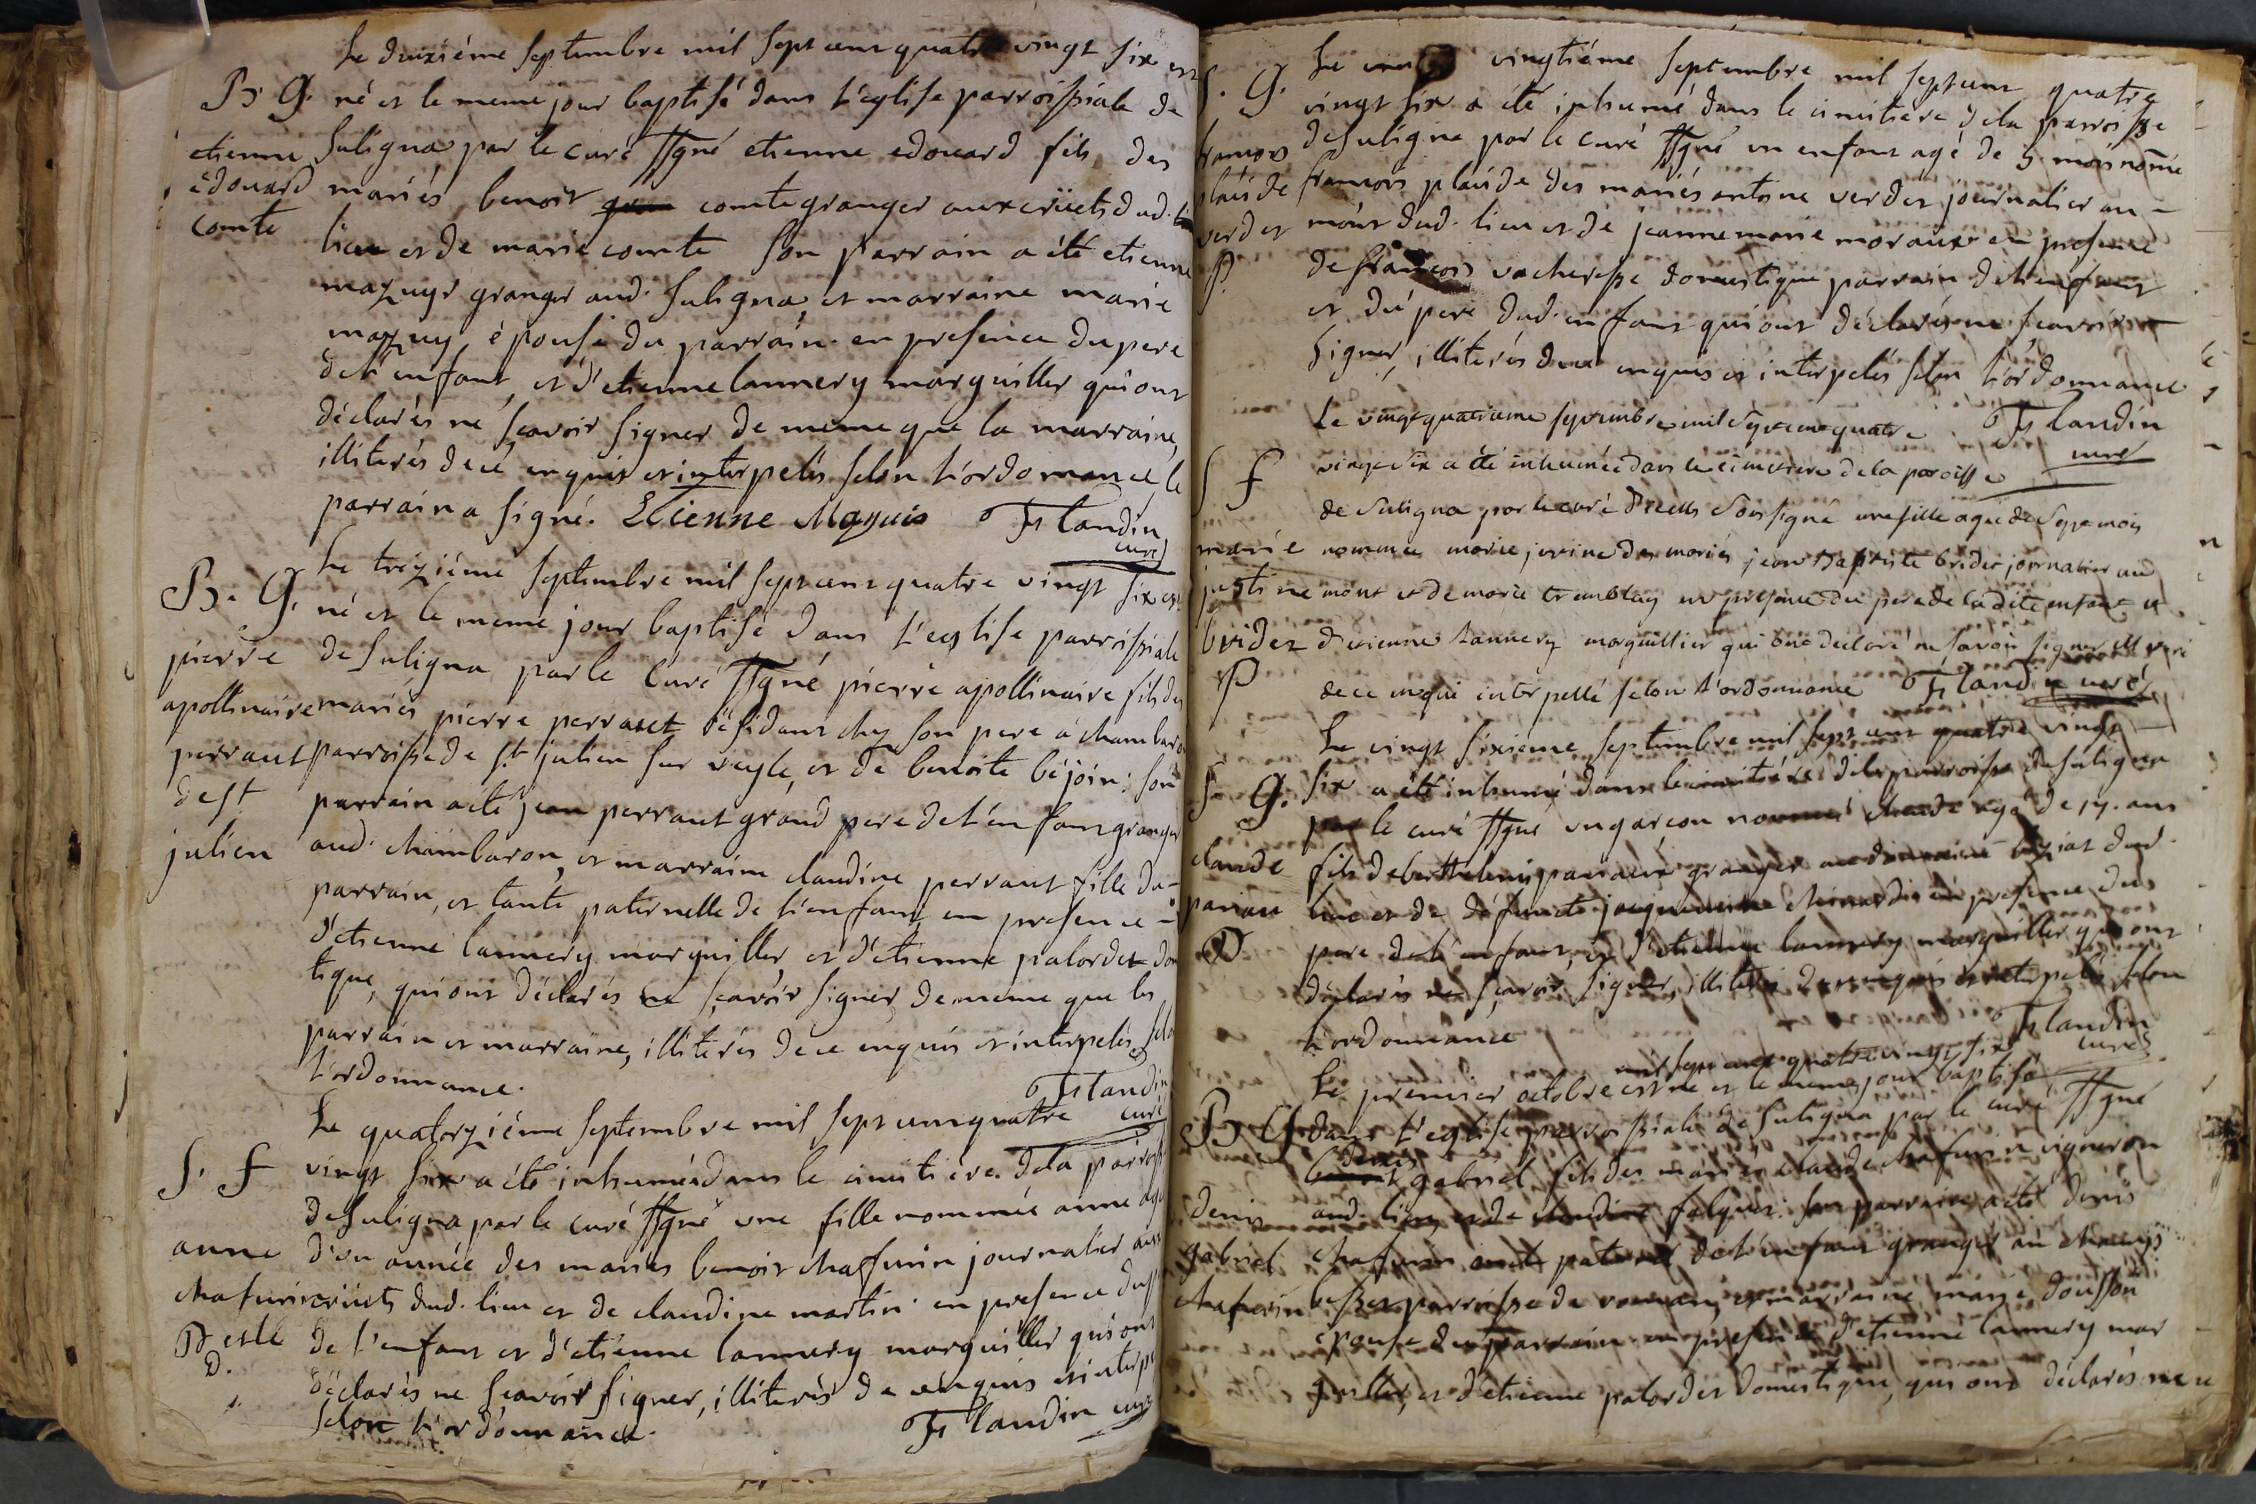 Le deuxiéme septembre mil sept cent quatre vingt six est
B. G. né et le meme jour baptisé dans l'eglise parroissiale de
etienne Suligna par le curé ssgné etienne edouard fils des
édouard mariés benoit comte granger aux criüets dud.
comte lieu et de marie comte son parrain a été etienne
mazuyr granger aud. Suligna, et marraine marie
mazuy, épouse du parrain en presence du pere
de l'enfant, et d'etienne lannery marguiller qui ont
déclarés ne sçavoir signer de meme que la marraine,
illiterés de ce enquis et interpelés selon l'ordonnance le
parrain a signé. Etienne Mazuis Flandin
curé
Le treziéme septembre mil sept cent quatre vingt six est
B. G. né et le meme jour baptisé dans l'eglise parroissiale
pierre de Suligna par le curé ssgné pierre apollinaire fils des
apollinaire mariés pierre perraut résidant chez son pere à chambaron
perraut parroisse de st julien sur veyle, et de benoite béjoin: son
de st parrain a été jean perraut grand pere de l'enfant granger
julien aud. chambaron, et marraine claudine perraut fille du
parrain, et tante paternelle de l'enfant en presence
d'etienne lannery marguiller, et d'etienne palordet domes
tique, qui ont déclarés ne sçavoir signer de meme que les
parrain et marraine, illiterés de ce enquis et interpelés selon
l'ordonnance. Flandin
curé
Le quatorziéme septembre mil sept cent quatre
S. f vingt six a été inhumée dans le cimitiére de la parroisse
de Suligna par le curé ssgné une fille nommée anne agée
anne d'un année des mariés benoit chaffurin journalier aux
chafurin criüets dud. lieu et de claudine martin en presence du pere
de l'enfant et d'etienne lannery marguiller qui ont
D. déclarés ne sçavoir signer, illiterés de ce enquis et interpelés
selon l'ordonnance. Flandin curé
Le vingtiéme septembre mil sept cent quatre
S. G. vingt six a été inhumé dans le cimitiere de la parroisse
francois de Suligna par le curé ssgné un enfant agé de 5 mois nommé
plaside francois plaside des mariés antoine verdet journalier au
verdet mont dud. lieu et de jeanne marie moraux en presence
P. de francois vacheresse domestique parrain de l'enfant
et du pere dud. enfant qui ont déclarés ne sçavoir
signer, illiterés de ce enquis et interpelés selon l'ordonnance
Flandin
curé
Le vingt quatrieme septembre mil sept cent quatre
S f vingt six a été inhumée dans le cimetiere de la paroisse
de Suligna par le curé soussigné une fille agée de mois
marie nommée marie justine des mariés jean Baptiste bridet journalier au
justine mont et de marie tremblay en presence du pere de la dite enfant et
bridet d'etienne lannery marguillier qui ont declaré ne savoir signer
P de ce enqui interpellé selon l'ordonnance Flandin curé
Le vingt sixieme septembre mil sept cent quatre vingt
S. G. six a été inhumé dans le cimitiére de la parroisse de Suligna
par le curé ssgné un garcon nommé claude agé de 17. ans
claude fils de berthelemi granger au domaine dud.
lieu et de défuncte en presence du
pere de l'enfant, et d'etienne lannery marguiller qui ont
déclarés ne sçavoir signer, illiterés de ce enquis et interpelés selon
l'ordonnance Flandin
curé
mil sept cent quatre vingt six
Le premier octobre est né et le meme jour baptisé
B G dans l'eglise parroissiale de Suligna par le curé ssgné
denis
gabriel fils des mariés claude chafurin vigneron
denis aud. lieu, et de claudine son parrain a été denis
gabriel chafurin oncle paternel de l'enfant granger au
chafurin parroisse de et marraine marie
épouse du parrain en presence d'etienne lannery mar
guiller, et d'etienne palordet domestique, qui ont déclarés ne